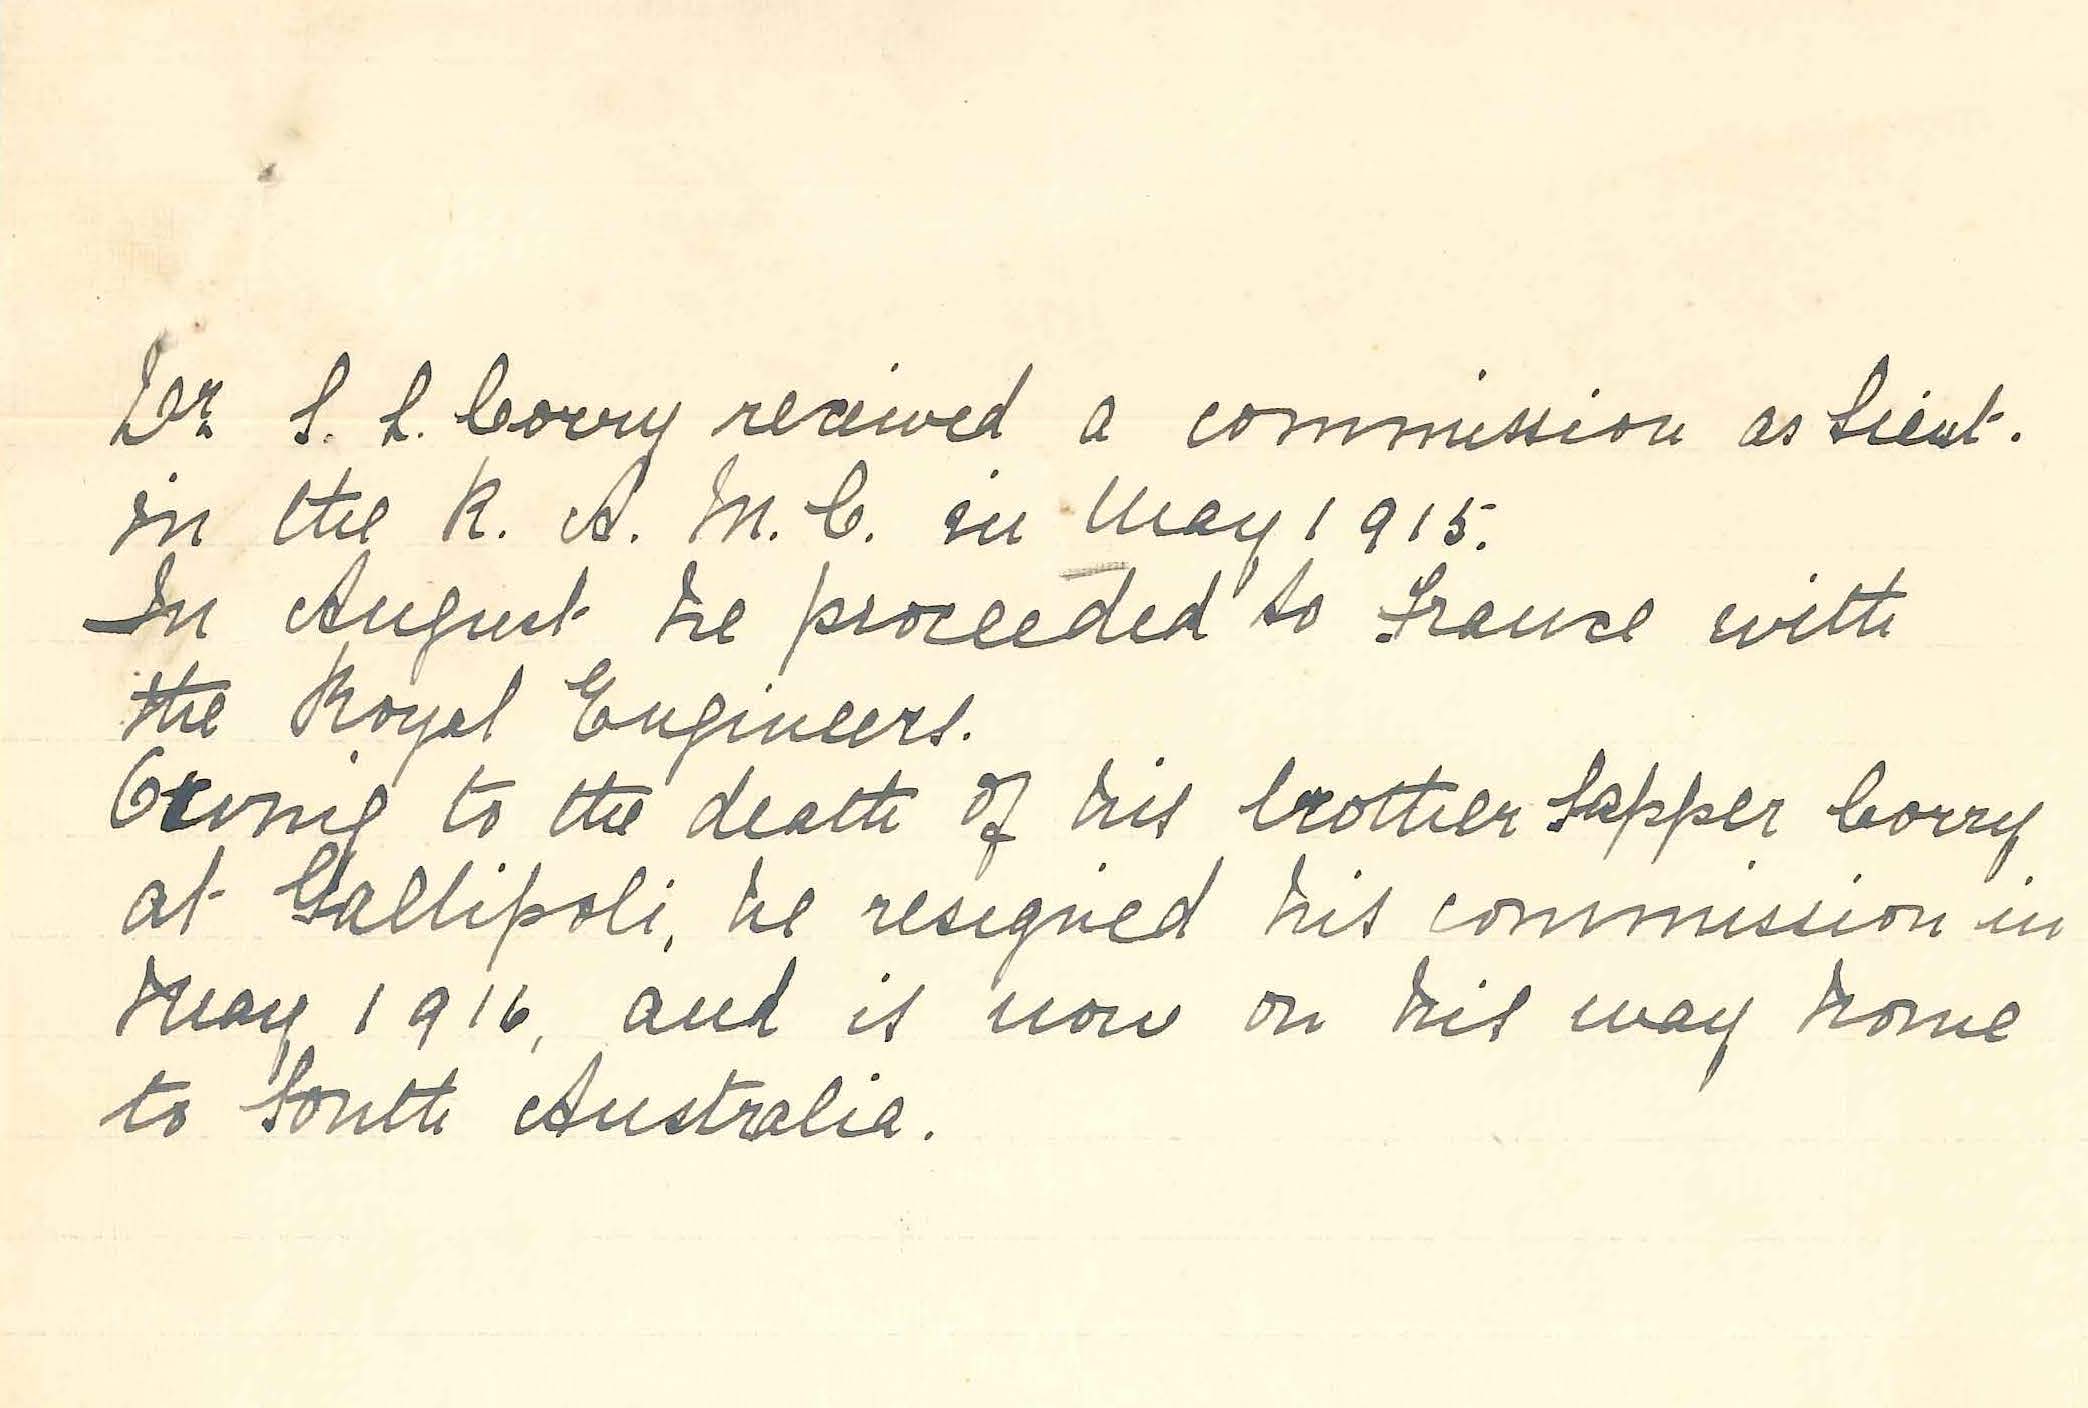 Dr S. L. Corry received a commission as Lieut.
in the R. A. M. C. in May 1915.
In August he proceeded to France with
the Royal Engineers.
Owing to the death of his brother Sapper Corry
at Gallipoli, he resigned his commission in
May 1916, and is now on his way home
to South Australia.